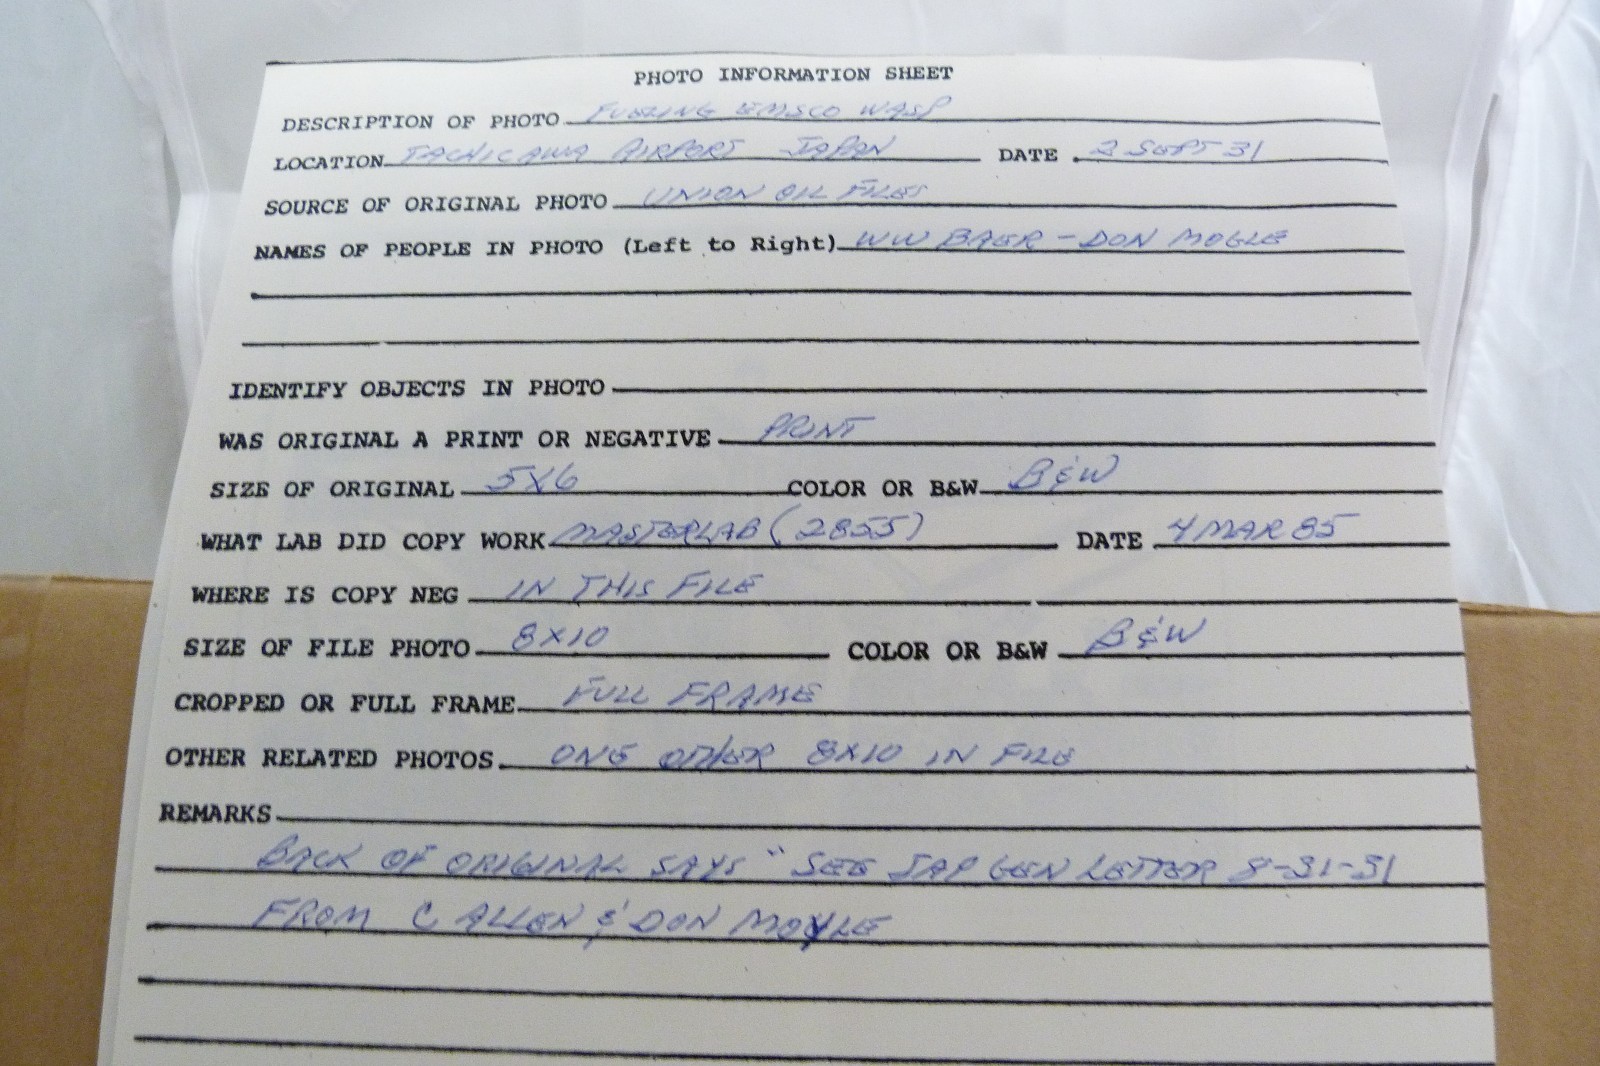 PHOTO INFORMATION SHEET
DESCRIPTION OF PHOTO FUELING EMSCO WASP
LOCATION TACHICAWA AIRPORT JAPAN DATE 2 SEPT 31
SOURCE OF ORIGINAL PHOTO UNION OIL FILES
NAMES OF PEOPLE IN PHOTO (Left to Right) WW BAER - DON MOGLE
IDENTIFY OBJECTS IN PHOTO
WAS ORIGINAL A PRINT OR NEGATIVE PRINT
SIZE OF ORIGINAL 5X6 COLOR OR B&W B&W
WHAT LAB DID COPY WORK MASTERLAB (2855) DATE 4 MAR 85
WHERE IS COPY NEG IN THIS FILE
SIZE OF FILE PHOTO 8X10 COLOR OR B&W B&W
CROPPED OR FULL FRAME FULL FRAME
OTHER RELATED PHOTOS ONE OTHER 8X10 IN FILE
REMARKS
BACK OF ORIGINAL SAYS "SEE JAP GEN LETTER 8-31-31
FROM C ALLEN & DON MOYLE